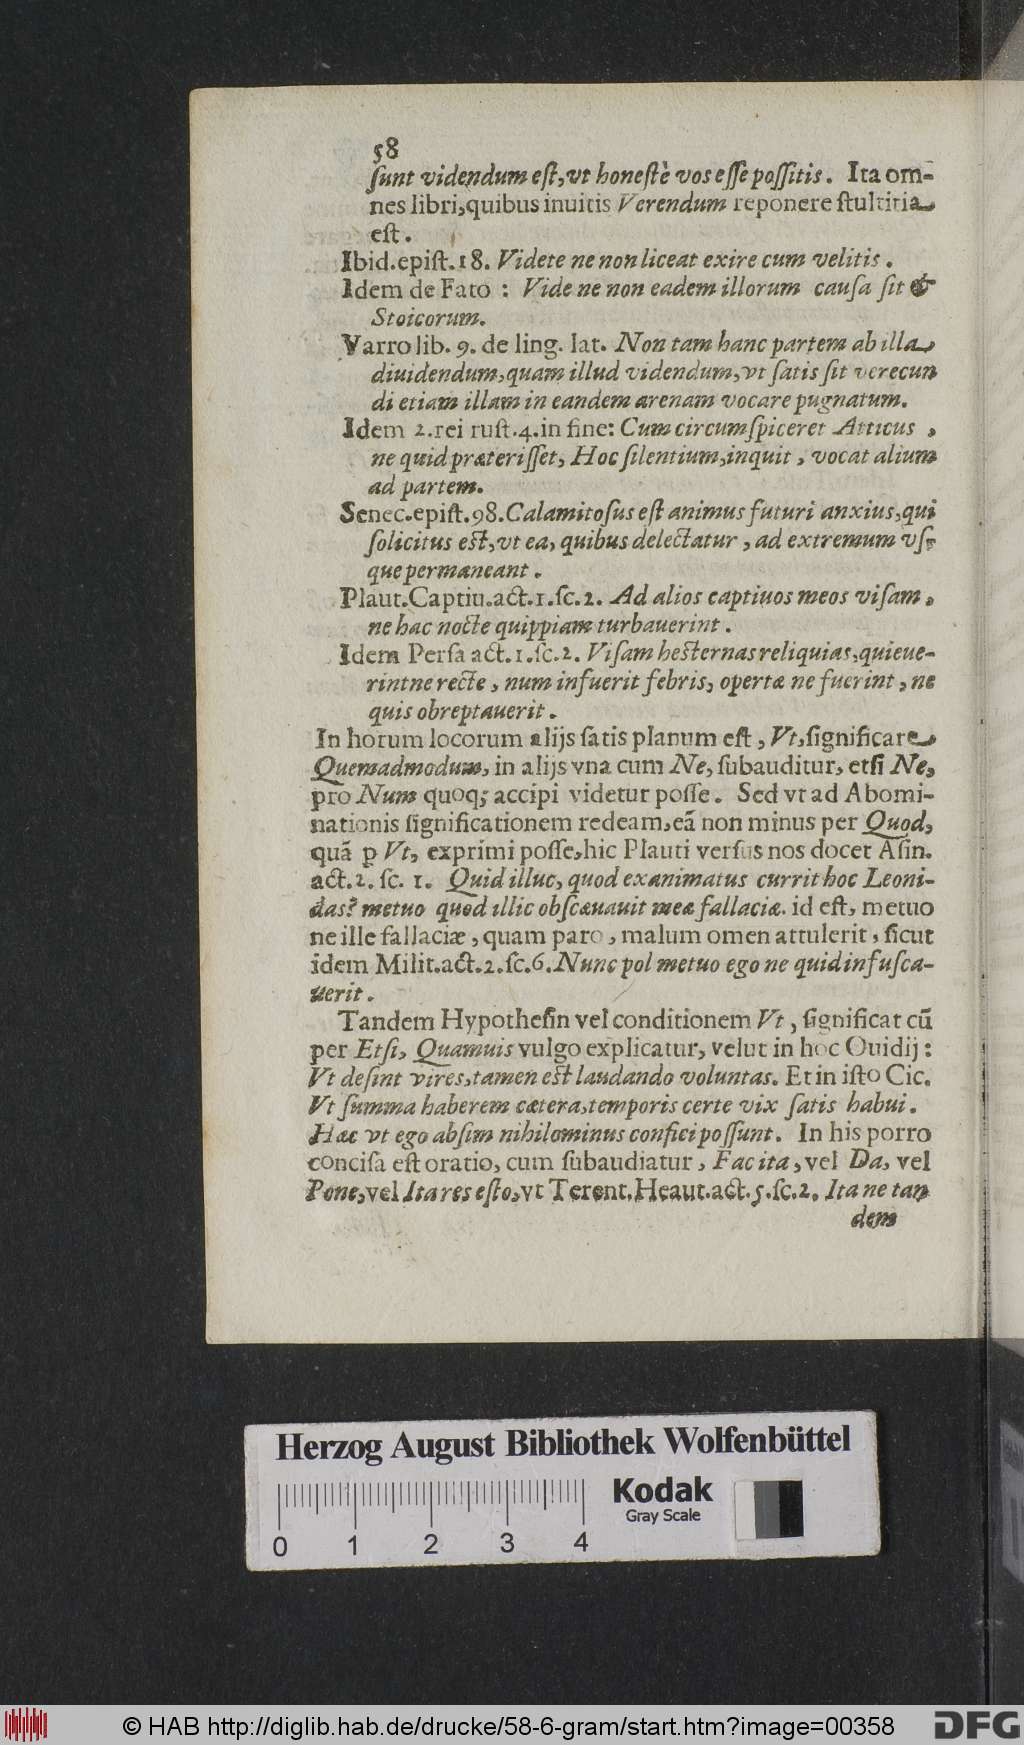 58
ſunt videndum eſt, vt honeſtè vos eſſe poſſitis. Ita om-
nes libri, quibus inuitis Verendum reponere ſtultitia
eſt.
Ibid. epiſt. 18. Videte ne non liceat exire cum velitis.
Idem de Fato: Vide ne non eadem illorum cauſa ſit &
Stoicorum.
Varro lib. 9. de ling. lat. Non tam hanc partem ab illa
diuidendum, quam illud videndum, vt ſatis ſit verecun
di etiam illam in eandem arenam vocare pugnatum.
Idem 2. rei ruſt. 4. in fine: Cum circumſpiceret Atticus,
ne quid præteriſſet, Hoc ſilentium, inquit, vocat alium
ad partem.
Senec. epiſt. 98. Calamitoſus eſt animus futuri anxius, qui
ſolicitus eſt, vt ea, quibus delectatur, ad extremum vſ-
que permaneant.
Plaut. Captiu. act. 1. ſc. 2. Ad alios captiuos meos viſam,
ne hac nocte quippiam turbauerint.
Idem Perſa act. 1. ſc. 2. Viſam heſternas reliquias, quieue-
rintne recte, num infuerit febris, opertæ ne fuerint, ne
quis obreptauerit.
In horum locorum alijs ſatis planum eſt, Vt, ſignificare
Quemadmodum, in alijs vna cum Ne, ſubauditur, etſi Ne,
pro Num quoq; accipi videtur poſſe. Sed vt ad Abomi-
nationis ſignificationem redeam, eã non minus per Quod,
quã ꝑ Vt, exprimi poſſe, hic Plauti verſus nos docet Aſin.
act. 2. ſc. 1. Quid illuc, quod exanimatus currit hoc Leoni-
das? metuo quod illic obſcæuauit meæ fallaciæ. id eſt, metuo
ne ille fallaciæ, quam paro, malum omen attulerit, ſicut
idem Milit. act. 2. ſc. 6. Nunc pol metuo ego ne quid infuſca-
uerit.
Tandem Hypotheſin vel conditionem Vt, ſignificat cũ
per Etſi, Quamuis vulgo explicatur, velut in hoc Ouidij:
Vt deſint vires, tamen eſt laudando voluntas. Et in iſto Cic.
Vt ſumma haberem cætera, temporis certe vix ſatis habui.
Hæc vt ego abſim nihilominus confici poſſunt. In his porro
conciſa eſt oratio, cum ſubaudiatur, Fac ita, vel Da, vel
Pone, vel Ita res eſto, vt Terent. Heaut. act. 5. ſc. 2. Ita ne tan
dem
Herzog August Bibliothek Wolfenbüttel
Kodak
Gray Scale
0 1 2 3 4
© HAB http://diglib.hab.de/drucke/58-6-gram/start.htm?image=00358
DFG